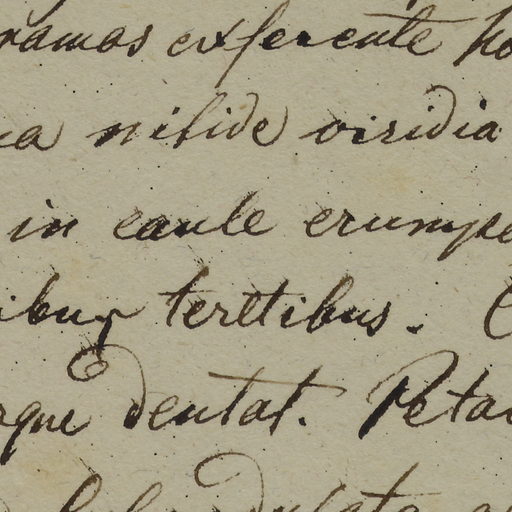 ramos exserente ho
ca nitide viridia
in caule erumpe
ibus teretibus. C
rque dentat. Petal